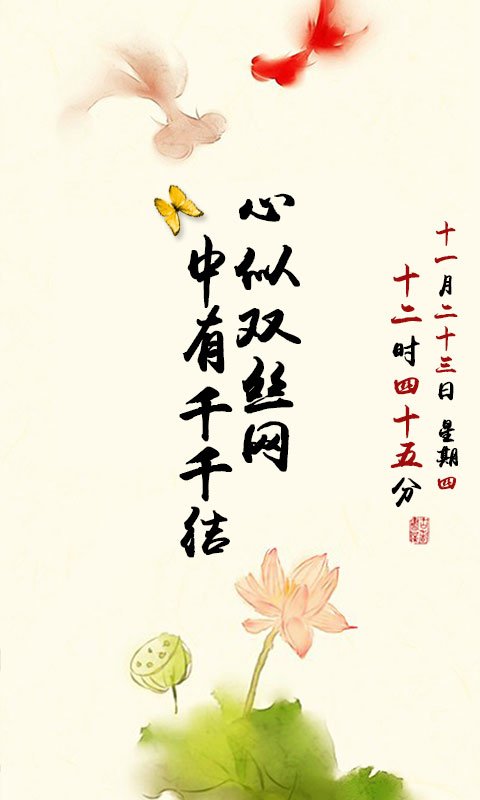 十一月二十三日 星期四
十二时四十五分
心似双丝网
中有千千结